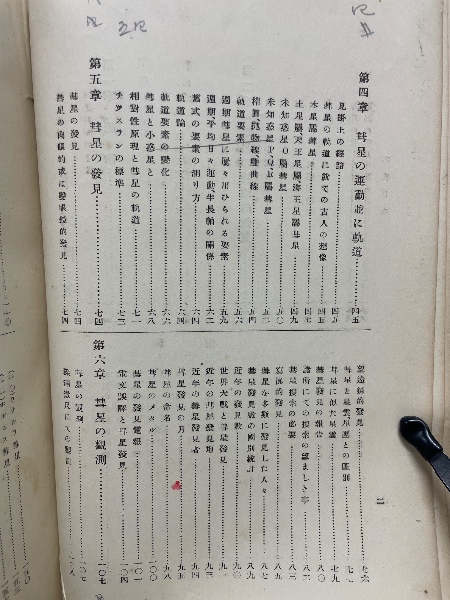 第四章 彗星の運動並に軌道……四五
見掛上の經路……四五
彗星の軌道に就ての古人の想像……四五
木星屬彗星……四七
土星屬天王星屬海王星屬彗星……四九
未知惑星O屬彗星……五〇
未知惑星P、Q、R屬彗星……五二
橢圓、抛物線、雙曲線……五四
軌道要素……五六
週期彗星に屢々用ひられる要素……五九
週期、平均日々運動、半長軸の關係……六二
舊式の要素の測り方……六四
軌道論……六四
軌道要素の變化……六六
彗星と小惑星と……六八
相對性原理と彗星の軌道……七一
チスランの標準……七三
第五章 彗星の發見……七四
彗星の發見……七四
彗星の肉眼的或は望遠鏡的發見……七四
二
寫眞的發見……七六
彗星と星雲星團との區別……七七
彗星に似た星雲……七九
彗星發見の報告……八〇
諸所にての搜索の望ましき事……八二
彗星搜索の必要……八三
寫眞的發見……八五
彗星を多數に發見した人々……八七
彗星發見數の國別統計……八九
近年の發見數……九〇
世界大戰と彗星發見……九一
近年の彗星發見地……九三
近年の彗星發見者……九四
彗星發見の月……九五
彗星の命名……九八
彗星のメダル……一〇〇
彗星の發見電報……一〇一
電文誤謬と彗星發見……一〇四
第六章 彗星の觀測……一〇七
彗星の觀測……一〇七